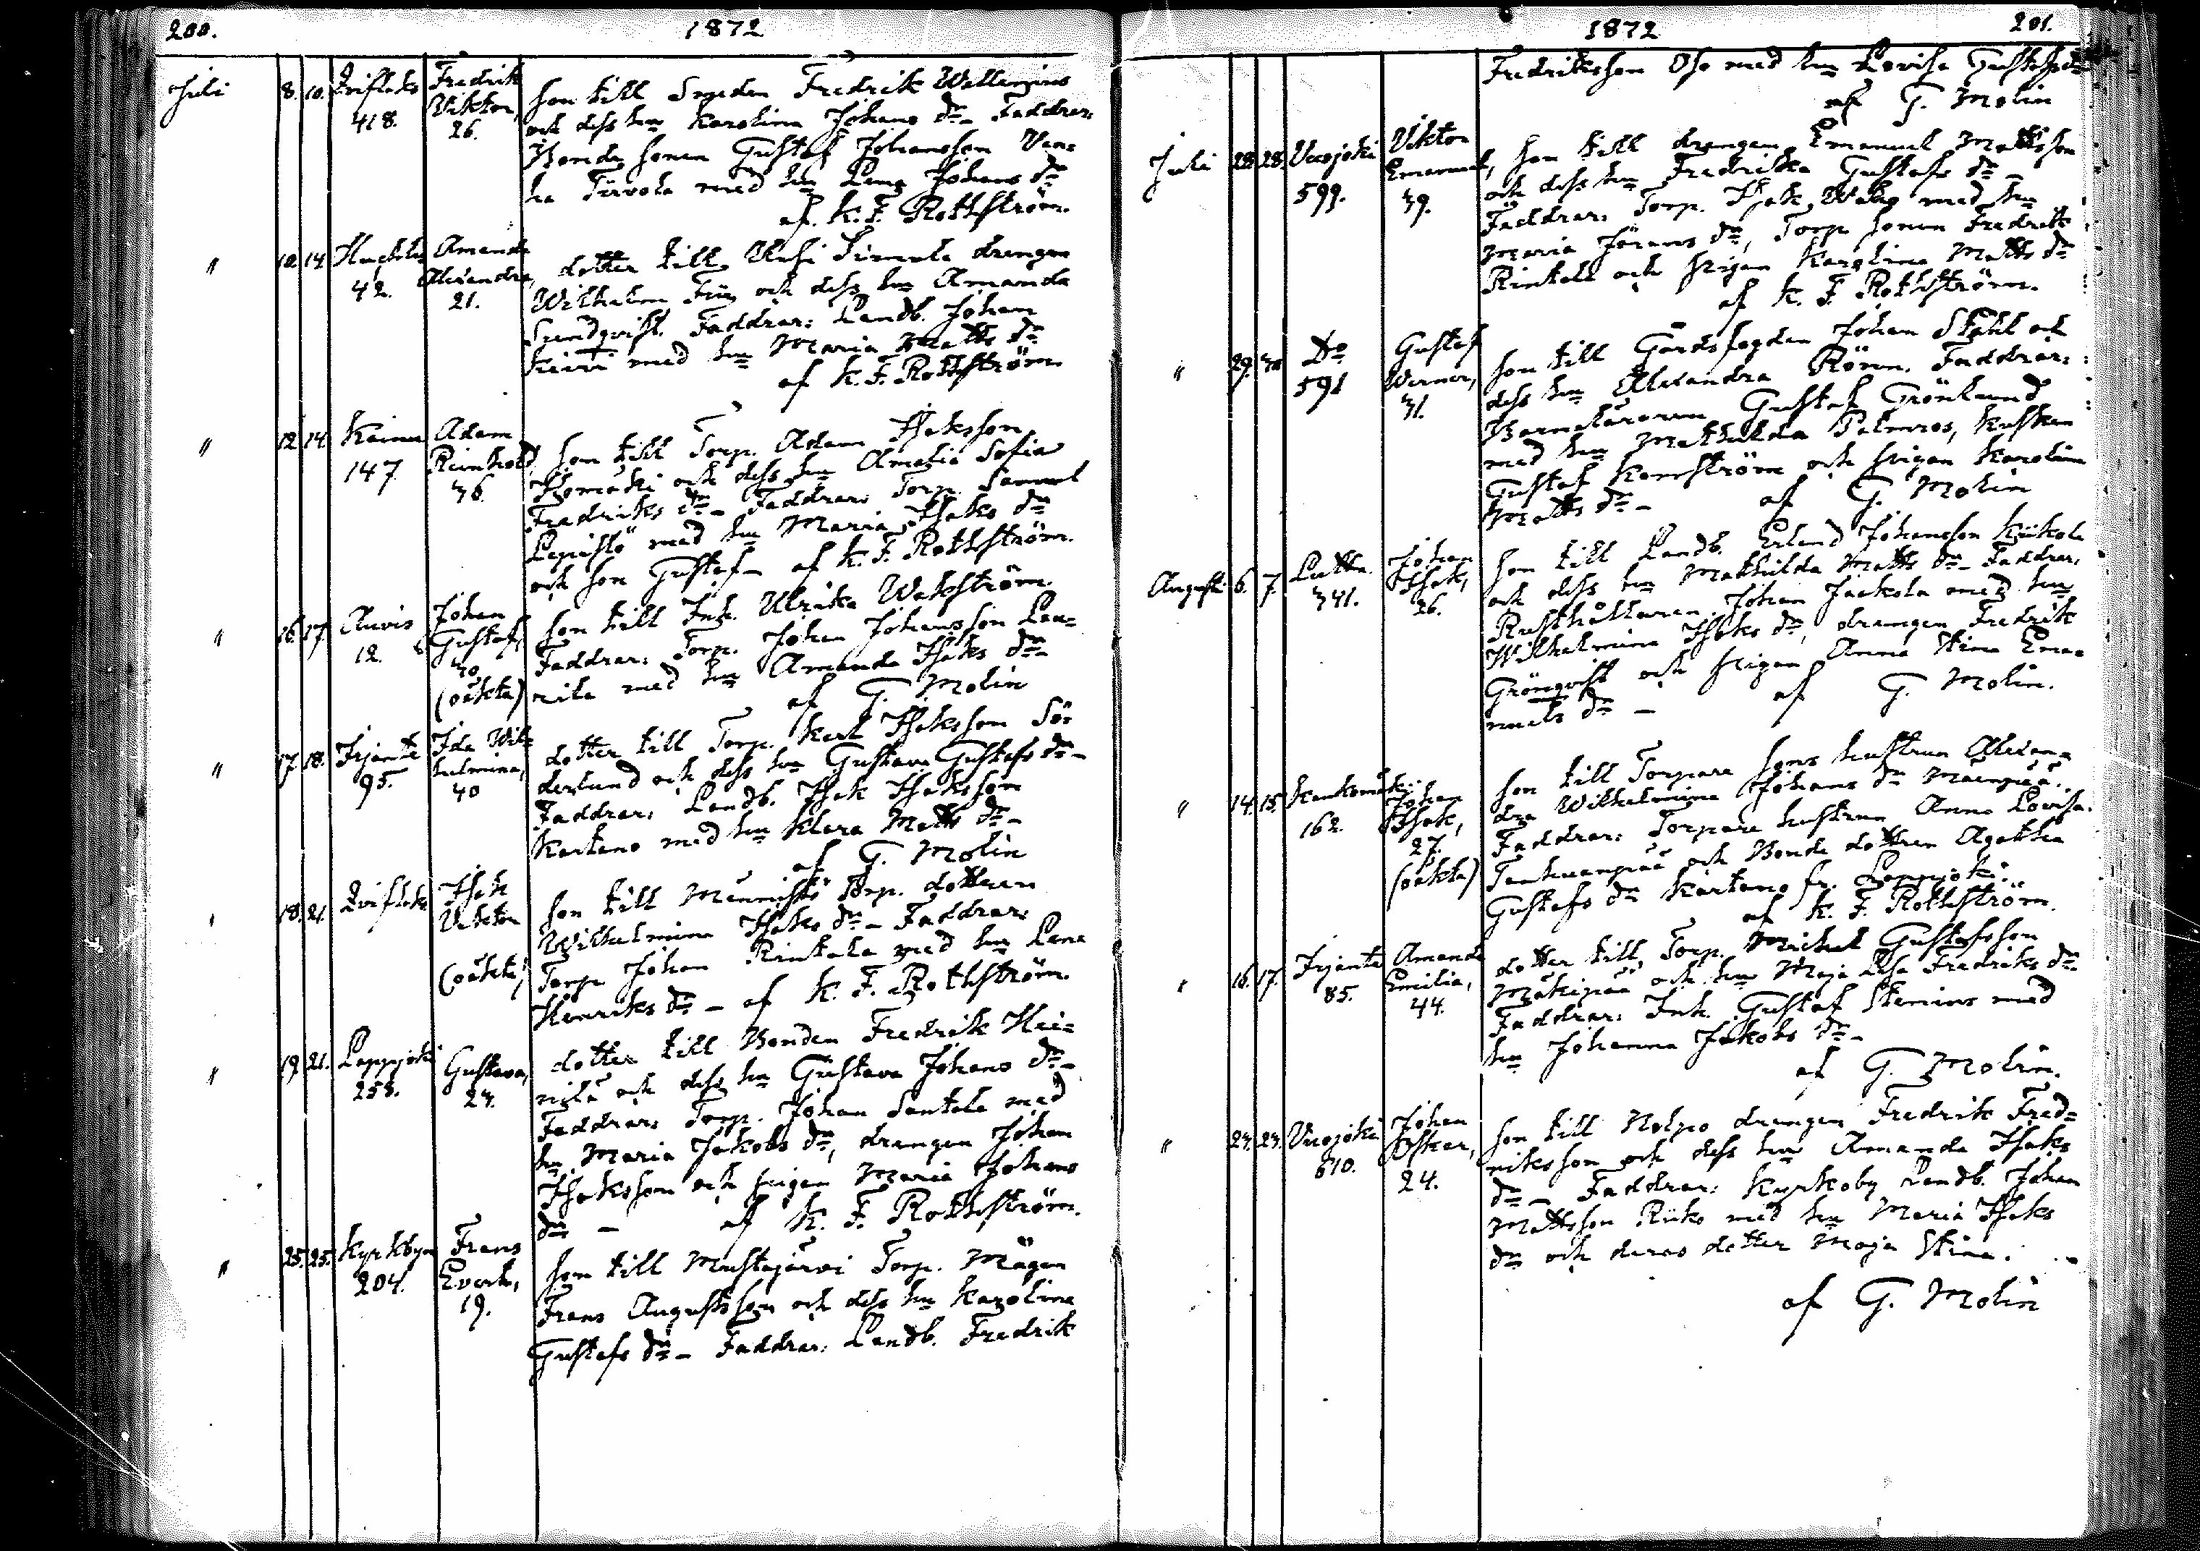 200.
1872
Juli 8. 10. Qviflaks Fredrik son till Smeden Fredrik Wellenius
418. Viktor, och dess hu Karolina Johans dr – Faddrar:
26. Bonde sonen Gustaf Johansson
Tirvola med hu Lena Johans dr
af. K. F. Rothström.
" 10. 14. Amanda dotter till Simula drängen
42. Alexandra Wilhelm och dess hu Amanda
21. Sundqvist. Faddrar: Landb. Johan
med hu Maria Matts dr
af K. F. Rothström
" 12. 14. Kainu Adam son till Torp. Adam Isaksson
147. Reinhold, och dess hu Amalia Sofia
36. Fredriks dr – Faddrar: Torp. Samuel
Lepistö med hu Maria Isaks dr
och son Gustaf – af K. F. Rothström.
" 16. 17. Auvis Johan son till Inh. Ulrika Wahlström.
12. Gustaf, Faddrar: Torp. Johan Johansson Lau=
30. rila med hu Amanda Isaks dr
(oäkta) af G. Molin
" 17. 18. Irjante Ida Wil= dotter till Torp. Karl Isaksson Sö=
95. helmina, derlund och dess hu Gustava Gustafs dr –
40 Faddrar: Landb. Isak Isaksson
Kartano med hu Klara Matts dr –
af G. Molin
18. 21. Qviflaks Isak son till Torp. dottern
Viktor Wilhelmina Isaks dr – Faddrar:
(oäkta) Torp Johan Rintala med hu Lena
Henriks dr – af K. F. Rothström.
" 19. 21. Lappijoki Gustava, dotter till Bonden Fredrik Hei=
258. 23. nilä och dess hu Gustava Johans dr –
Faddrar: Torp. Johan Santala med
hu Maria Jakobs dr, drängen Johan
Isaksson och pigan Maria Johans
dr – af K. F. Rothström.
" 25. 25. Kyrkbyn Frans son till Mustajärvi Torp. Mågen
204. Evert, Frans Augustsson och dess hu Karolina
19. Gustafs dr – Faddrar: Landb. Fredrik
1872
201.
Fredriksson med hu Lovisa Gustafs dr
af G. Molin
Juli 28. 28. Vuojoki Viktor son till drängen Emanuel Mattsson
599. Emanuel, och dess hu Fredrika Gustafs dr –
39. Faddrar: Torp. Isak med hu
Maria Görans dr, Torp sonen Fredrik
Rintala och pigan Karolina Matts dr
af K. F. Rothström.
" 29. 30 Do Gustaf son till Gårdsfogden Johan Ståhl och
591 Werner, dess hu Alexandra Roren. Faddrar:
31. Barnaläraren Gustaf Grönlund
med hu Mathilda Palmros, Kusken
Gustaf och pigan Karolina
Matts dr – af G. Molin
Augusti 6. 7. Lutta Johan son till Landb. Erland Johansson Kiikola
341. Isak, och dess hu Mathilda Matts dr – Faddrar:
26. Rusthållaren Johan Jaakola med hu
Wilhelmina Isaks dr, drängen Fredrik
Grönqvist och pigan Anna Stina Ema=
nuels dr – af G. Molin.
" 14. 15. Kaukomäki Johan son till Torpare sons hustrun Alexan=
162. Isak, dra Wilhelmina Johans dr Mäenpää.
27. Faddrar: Torpare hustrun Anna Lovisa
(oäkta) Tanhuanpää och Bonde dottren Agatha
Gustafs dr Kartano fr. Lappijoki.
af K. F. Rothström.
" 16. 17. Irjante Amanda dotter till Torp. Mickel Gustafsson
85. Emilia, Mäkipää och hu Maja Lisa Fredriks dr
44. Faddrar: Inh. Gustaf Stenius med
hu Johanna Jakobs dr –
af G. Molin.
" 23. 23. Vuojoki Johan son till drängen Fredrik Fred=
610. Oskar, riksson och dess hu Amanda Isaks
24. dr – Faddrar: Kyrkoby Landb. Johan
Mattsson med hu Maria Isaks
dr och deras dotter Maja Stina.
af G. Molin